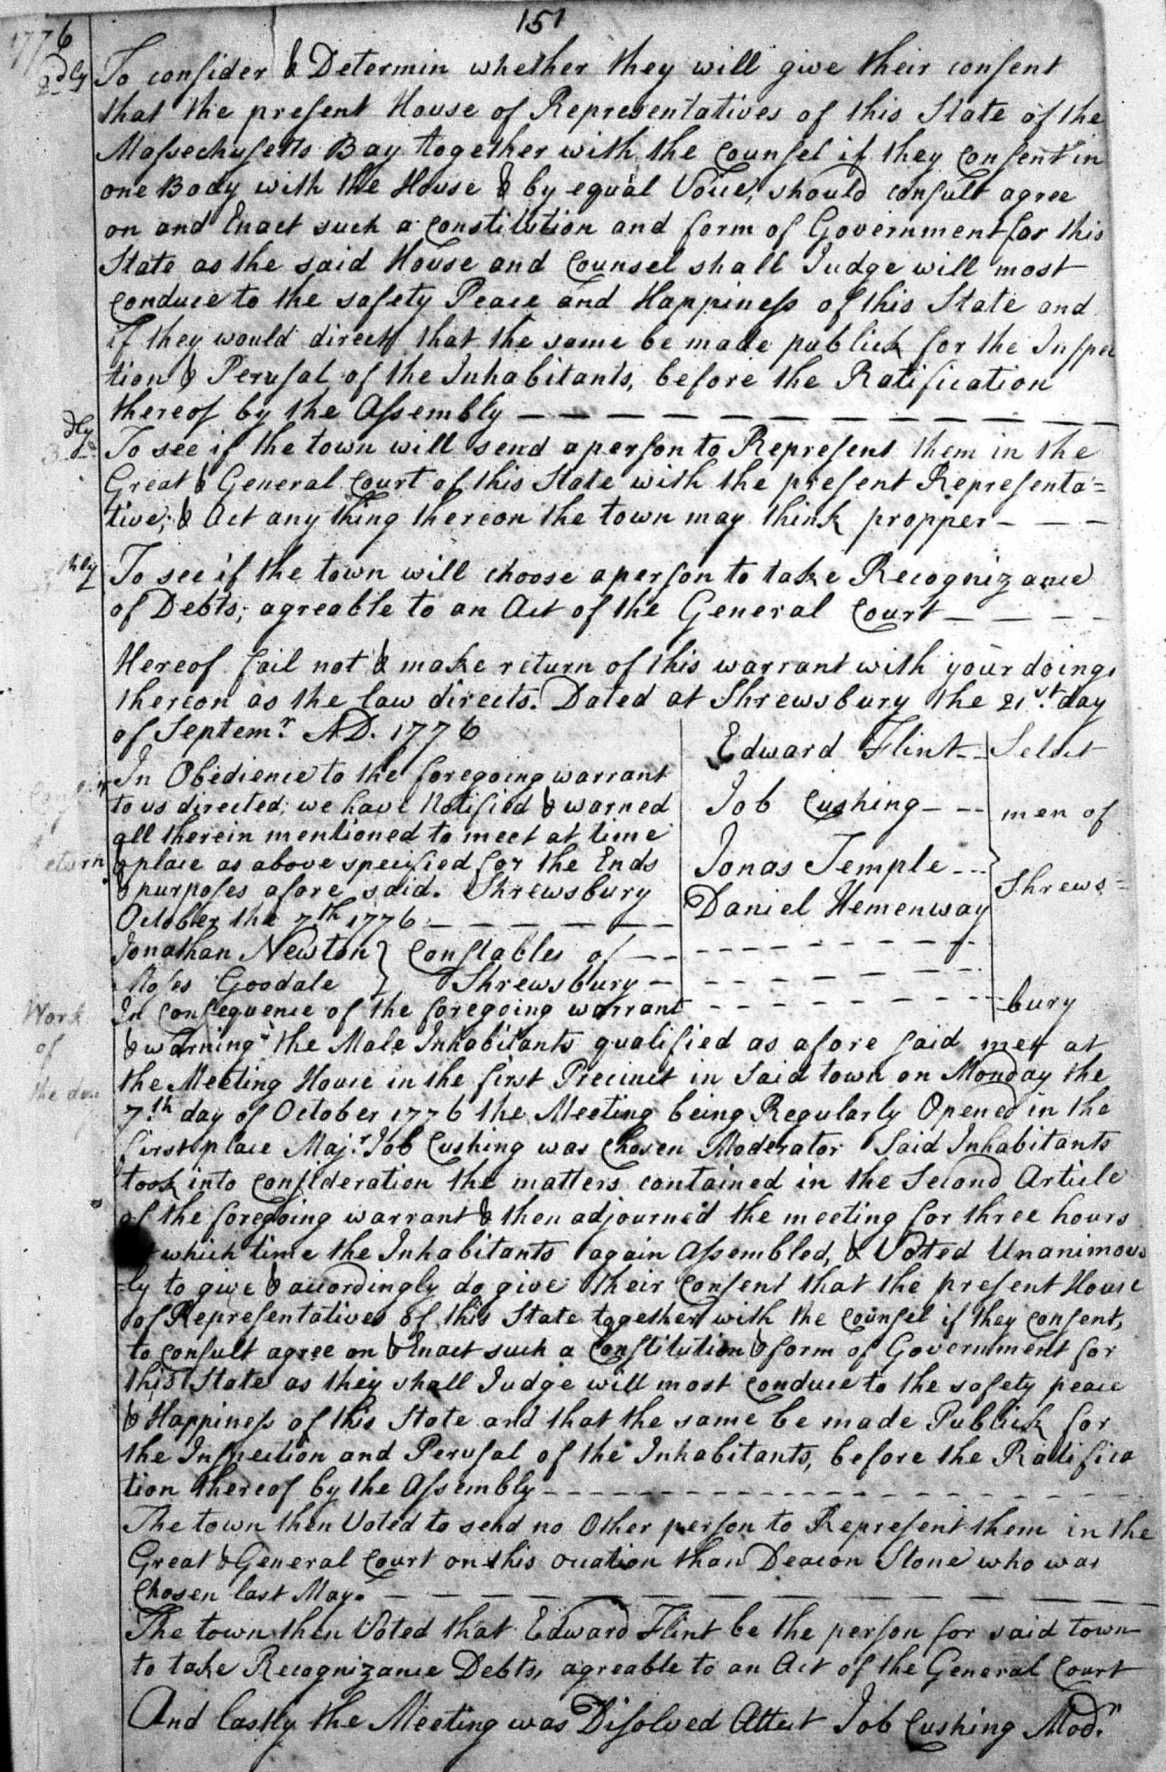 151
1776
2dly To consider & Determin whether they will give their consent
that the present House of Representatives of this State of the
Massechusetts Bay together with the Counsel if they Consent in
one Body with the House & by equal Voice, should consult agree
on and Enact such a Constitution and form of Government for this
State as the said House and Counsel shall Judge will most
Conduce to the safety Peace and Happiness of this State and
if they would direct that the same be made publick for the Inspec
tion & Perusal of the Inhabitants, before the Ratification
thereof by the Assembly
3dly To see if the town will send a person to Represent them in the
Great & General Court of this State with the present Representa=
tive; & Act any thing thereon the town may think propper
thly To see if the town will choose a person to take Recognizance
of Debts; agreable to an Act of the General Court
Hereof fail not & make return of this warrant with your doings
thereon as the law directs. Dated at Shrewsbury the 21st day
of Septemr. AD. 1776
Edward Flint
Job Cushing
Jonas Temple
Daniel Hemenway
Select
men of
Shrews=
bury
In Obedience to the foregoing warrant
to us directed; we have Notified & warned
all therein mentioned to meet at time
& place as above specified for the Ends
& purposes afore said. Shrewsbury
October the 7th 1776
eturn
Jonathan Newton } Constables of
Moses Goodale } Shrewsbury
Work
of
the day
In Consequence of the foregoing warrant
& warning the Male Inhabitants qualified as afore said met at
the Meeting House in the first Precinct in Said town on Monday the
7th day of October 1776 the Meeting being Regularly Opened in the
first place Majr. Job Cushing was Chosen Moderator Said Inhabitants
took into Consideration the matters contained in the Second Article
of the foregoing warrant & then adjourned the meeting for three hours
which time the Inhabitants again Assembled, & Voted Unanimous
ly to give & accordingly do give their Consent that the present House
of Representatives of this State together with the Counsel if they Consent,
to Consult agree on & Enact such a Constitution & form of Government for
this State as they shall Judge will most Conduce to the safety peace
& Happiness of this State and that the same be made Publick for
the Inspection and Perusal of the Inhabitants, before the Ratifica
tion thereof by the Assembly
The town then Voted to send no Other person to Represent them in the
Great & General Court on this ocation than Deacon Stone who was
Chosen last May.
The town then Voted that Edward Flint be the person for said town
to take Recognizance Debts, agreable to an Act of the General Court
And lastly the Meeting was Disolved Attest Job Cushing Modr.